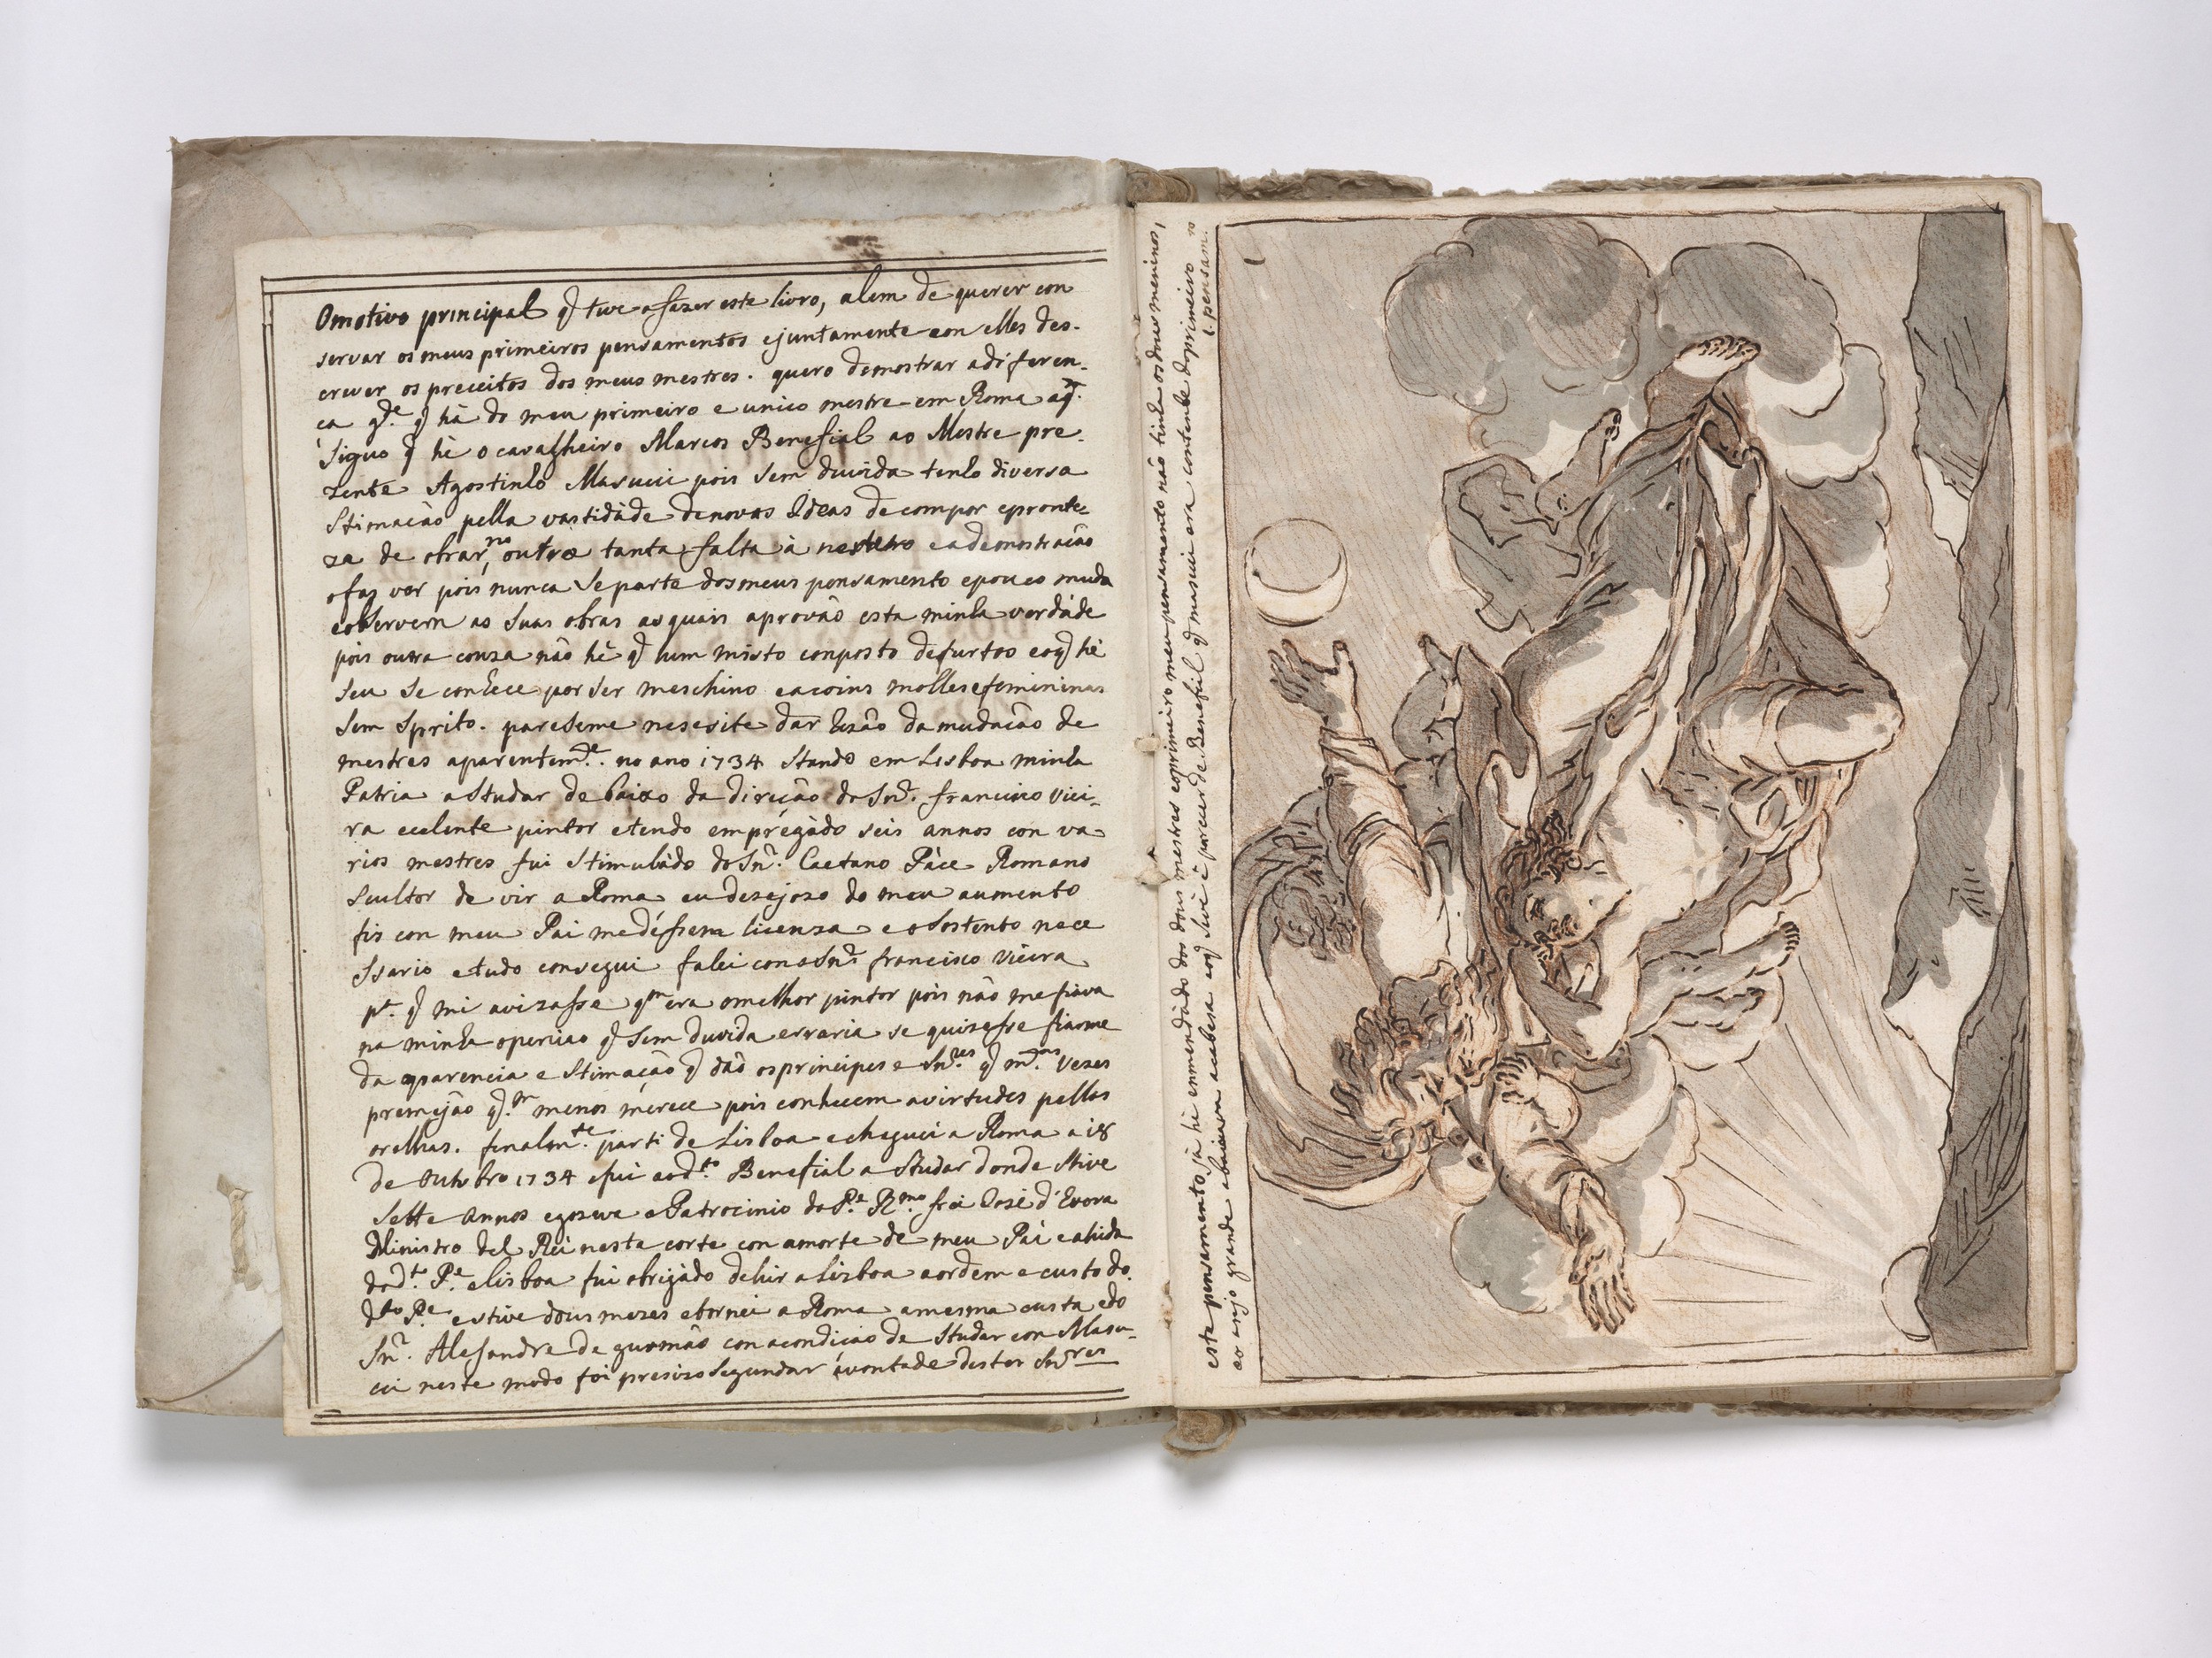 O motivo principal q̃ tive a fazer este livro, alem de querer con
servar os meus primeiros pensamentos e juntamente con elles des-
crever os preceitos dos meus mestres. quero demostrar a diferen-
ca gde. q̃ há do meu primeiro e unico mestre em Roma aqm.
siguo q̃ hè o cavalheiro Marcos Benefial ao Mestre pre-
zente Agostinho Masucci pois sem duvida tenho diversa
stimação pella vastidàde de novas ideas de compor e pronte-
za de obrar, no outro tanta falta à nesttro e a demostração
o fas ver pois nunca se parte dos meus pensamento e pouco muda
e observem as suas obras as quais aprovão esta minha verdàde
pois outra couza não hè q̃ hum misto conposto de furtos e o q̃ hè
seu se conhece por ser meschino e acoins molles e femininas
sem sprito. pareseme nesesite dar rezão da mudação de
mestres aparentemde. no ano 1734 stando em Lisboa minha
Patria a studar de baixo da direção do Snr. francisco Viei-
ra ecelente pintor e tendo empregàdo seis annos con va-
rios mestres fui stimulàdo do Snr. Caetano Pàce Romano
scultor de vir a Roma eu desejozo do meu aumento
fis con meu Pai me désse licensa e o sostento nece
ssario e tudo consegui falei con o Snr francisco Vieira
pa. q̃ mi avizasse qm era o melhor pintor pois não me fiava
na minha openiao q̃ sem duvida erraria se quizesse fiarme
da aparencia e stimação q̃ dão os principes e Snres. q̃ mtas. vezes
premejão qm. menos mèrece pois conhecem a virtudes pellas
orelhas. finalmte. parti de Lisboa e cheguei a Roma a 18
de Outubro 1734 e fui ao dto. Benefial a studar donde stive
sette annos e gozava o Patrocinio do Pe. Rmo. frei José d'Evora
Ministro del Rei nesta corte con a morte de meu Pài e a hida
do dto. Pe. e lisboa fui obrigàdo de hir a Lisboa a ordem e custo do
dto Pe. e stive dous mezes e tornei a Roma a mesma custa e do
Snr. Alesandre de gusmão con a condicao de studar con Masu-
ci neste modo foi precizo segundar á vontade destes Snres
este pensamento jà hè enmendàdo dos dous mestres e o primeiro meu pensamento não tinha os dous meninos,
e o anjo grande abaixava a cabesa e o q̃ seve è parecer de Benefial q̃ masuci era contente do primeiro
pensam.to